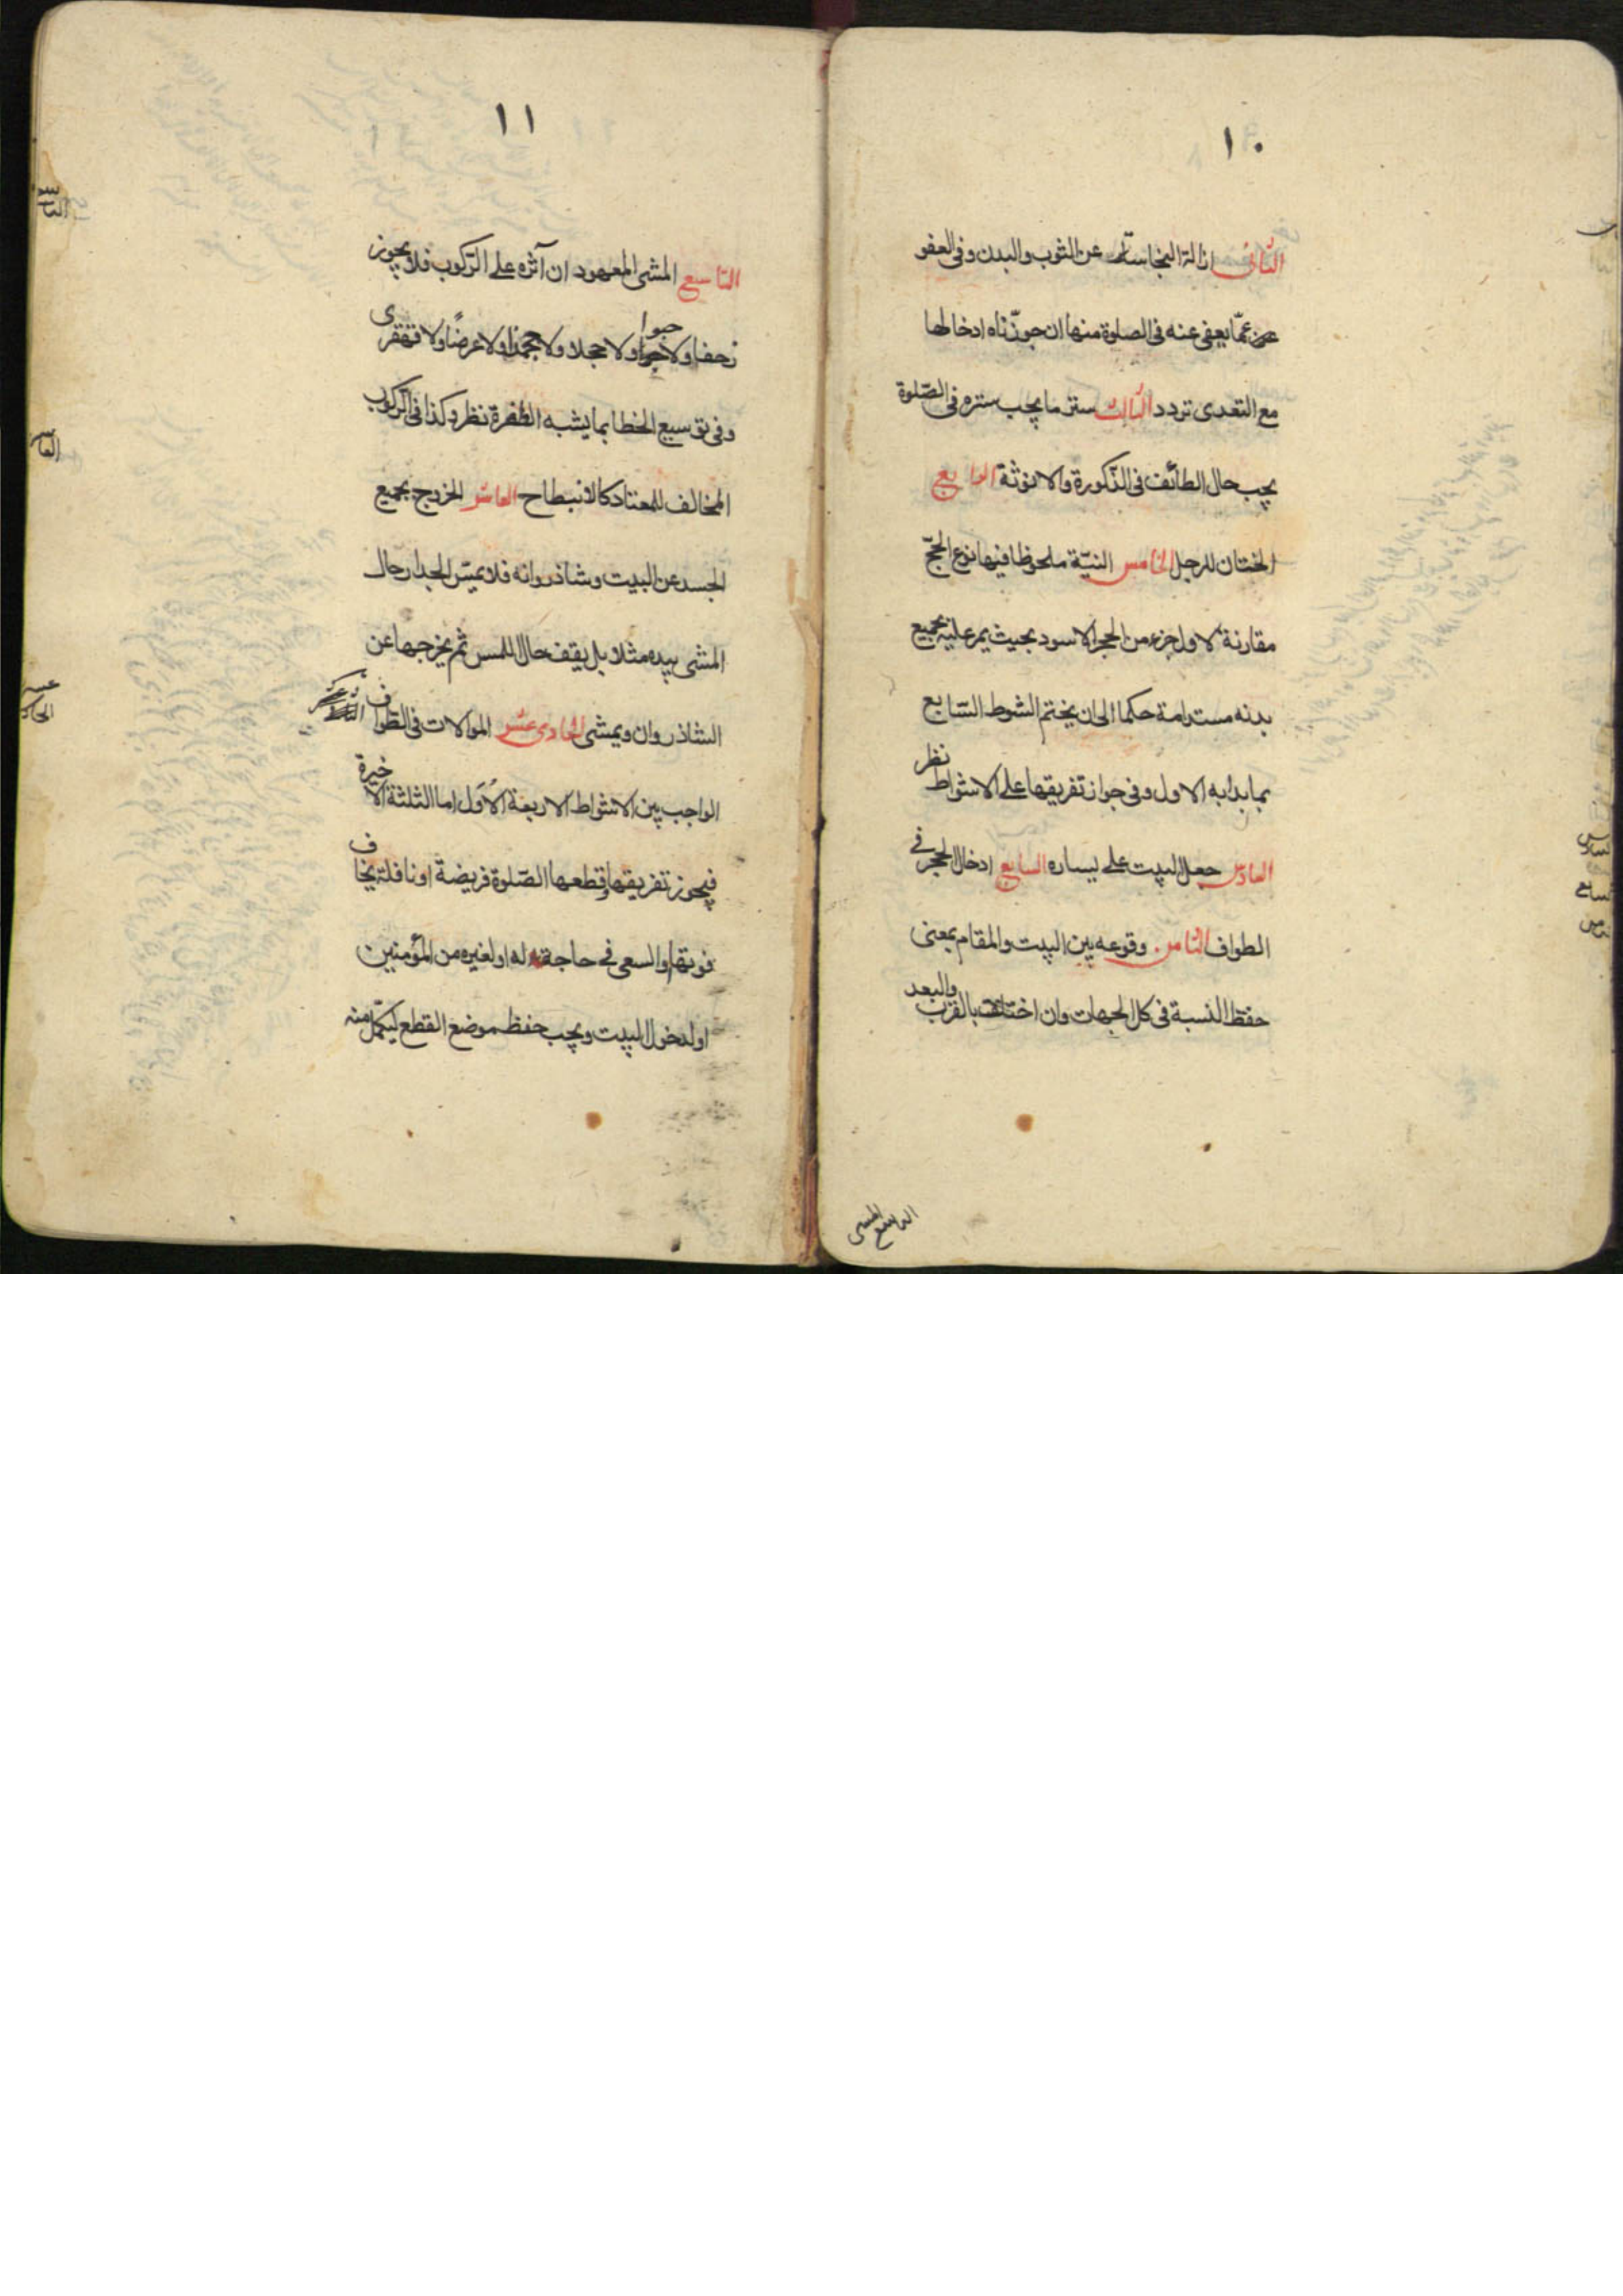 ١٠
الثانى ازالة النجاسات عن الثوب والبدن وفى العفو
عمّا يعفى عنه فى الصلوة منها ان جوّزناه ادخالها
مع التعدى تردد الثالث ستر ما يجب ستره فى الصّلوة
بحسب حال الطائف فى الذّكورة والانوثة الرابع
الختان للرجل الخامس النيّة ملحوظا فيها نوع الحجّ
مقارنة لاول جزء من الحجر الاسود بحيث يمر عليه بجميع
بدنه مستدامة حكما الى ان يختم الشوط السّابع
بما بدا به الاول وفى جواز تفريقها على الاشواط نظر
السادس جعل البيت على يساره السابع ادخال الحجر فى
الطواف الثامن وقوعه بين البيت والمقام بمعنى
حفظ النسبة فى كل الجهات وان اختلفت بالقرب والبعد
التاسع المشى
١١
التاسع المشى المعهود ان آثره على الرّكوب فلا يجوز
زحفا ولا حبوا ولا حجلا ولا جمزا ولا عرضًا ولا قهقرى
وفى توسيع الخطا بما يشبه الطّفرة نظر وكذا فى الرّكوب
المخالف للمعتاد كالانبطاح العاشر الخروج بجميع
الجسد عن البيت وشاذروانه فلا يمسّ الجدار حال
المشى بيده مثلا بل يقف حال اللمس ثم يخرجها عن
الشاذروان ويمشى الحادى عشر الموالات فى الطّواف
الواجب بين الاشواط الاربعة الاُوَل اما الثلثة الاخيرة
فيجوز تفريقها وقطعها الصّلوة فريضة او نافلة يخاف
فوتها والسعى فى حاجة له او لغيره من المؤمنين
او لدخول البيت ويجب حفظ موضع القطع ليكمّل منه